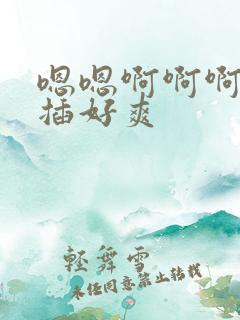 嗯嗯啊啊啊
插好爽
輕舞雪
未经同意禁止转载